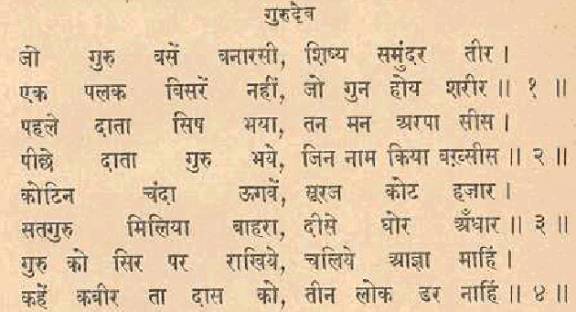 गुरुदेव
जो गुरु बसें बनारसी, शिष्य समुंदर तीर ।
एक पलक बिसरें नहीं, जो गुन होय शरीर ॥ १ ॥
पहले दाता सिष भया, तन मन अरपा सीस ।
पीछे दाता गुरु भये, जिन नाम किया बख़्सीस ॥ २ ॥
कोटिन चंदा ऊगवें, सूरज कोट हजार ।
सतगुरु मिलिया बाहरा, दीसे घोर अँधार ॥ ३ ॥
गुरु को सिर पर राखिये, चलिये आज्ञा माहिं ।
कहें कबीर ता दास को, तीन लोक डर नाहिं ॥ ४ ॥